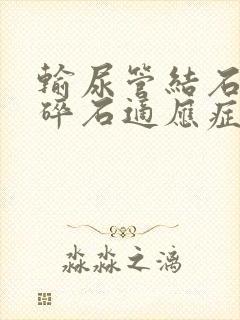 輸尿管結石
碎石適應症
淼淼之漓